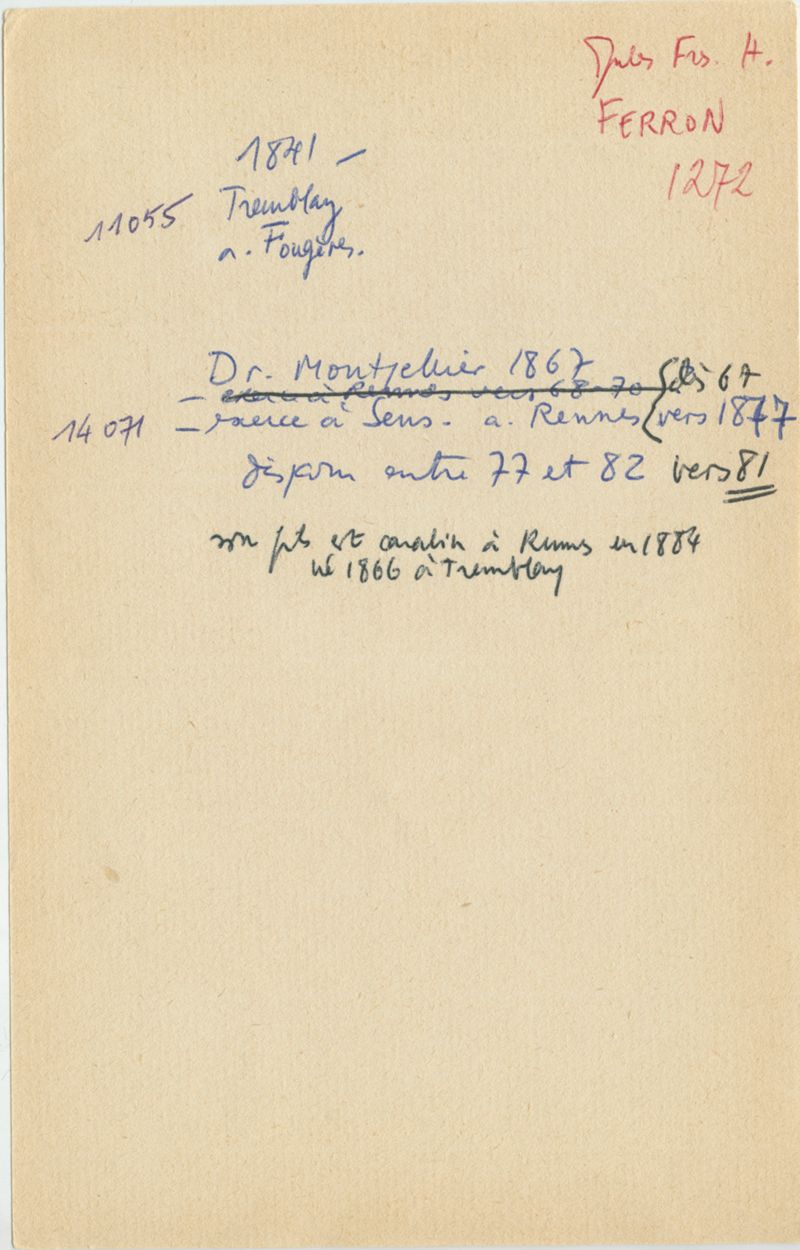 Jules Frs. H.
FERRON
1272
1841 –
11055 Tremblay
a. Fougères.
Dr. Montpellier 1867
– exerce à Rennes vers 68-70 dès 67
14071 – exerce à Sens. a. Rennes vers 1877
disparu entre 77 et 82 vers 81
son fils est carabin à Rennes en 1884
né 1866 à Tremblay